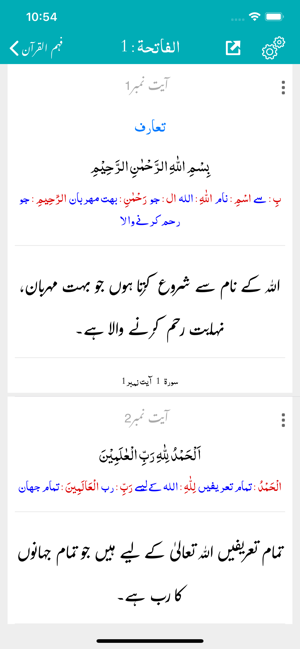 10:54
فہم القرآن
الفاتحة : 1
آیت نمبر1
تعارف
بِسْمِ اللهِ الرَّحْمٰنِ الرَّحِيْمِ
بِ : سے اسْمِ : نام اللهِ : الله ال : جو رَحْمٰنِ : بہت مهربان الرَّحِيمِ : جو
رحم کرنے والا
اللہ کے نام سے شروع کرتا ہوں جو بہت مہربان،
نہایت رحم کرنے والا ہے۔
سورة 1 آیت نمبر 1
آیت نمبر2
اَلْحَمْدُ لِلّٰهِ رَبِّ الْعٰلَمِيْنَ
الْحَمْدُ : تمام تعریفیں لِلّٰهِ : الله کے لیے رَبِّ : رب الْعَالَمِينَ : تمام جهان
تمام تعریفیں اللہ تعالیٰ کے لیے ہیں جو تمام جہانوں
کا رب ہے۔